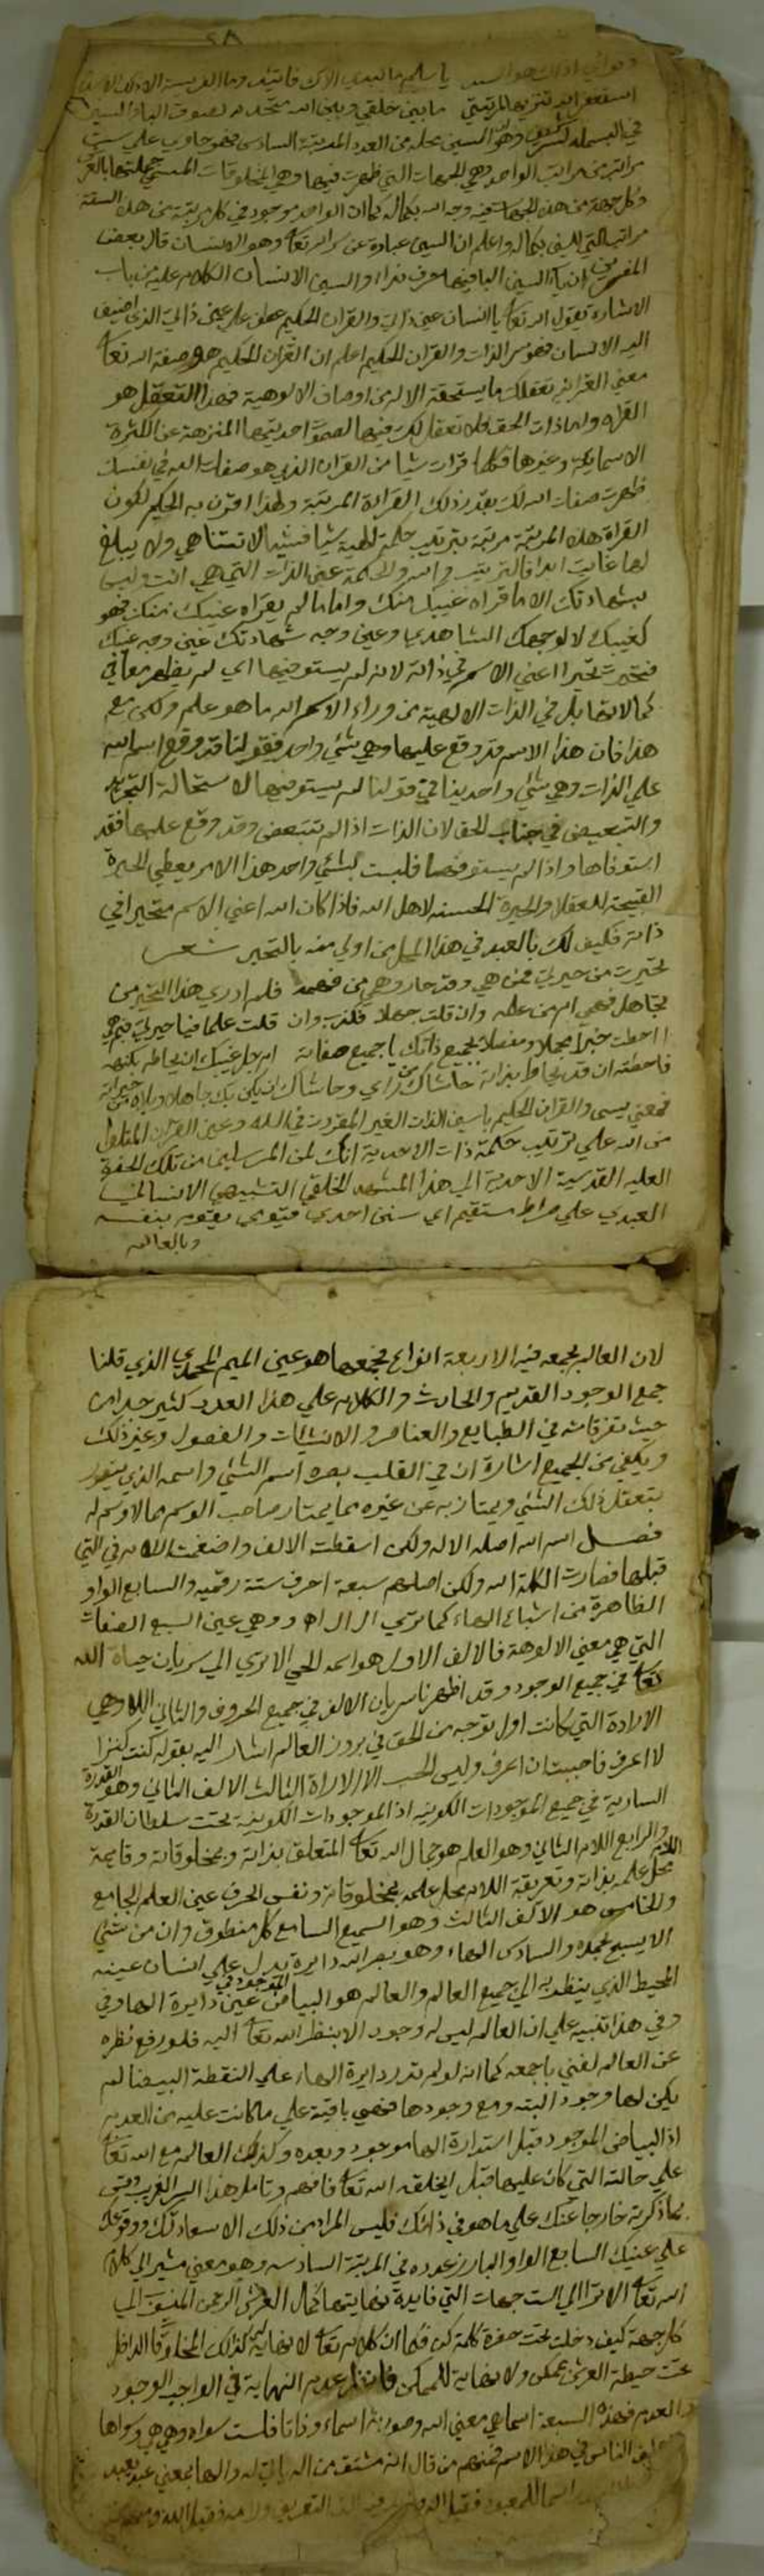 استغفر الله تنزيها لمرتبتي ما بيني خلقي وبين الله متحد
في البسملة
مراتب من مراتب الواحد وهي الجهات التي ظهرت فيها وهي المخلوقات
وكل جهة من هذه الجهات فيه وجه الله بكماله كما ان الواحد موجود في كل مرتبة من هذه الستة
مراتب التي للسين بكماله واعلم ان السين عبارة عن سر الله تعا وهو الانسان قال بعض
المفسرين ان ياء السين اليا فيها حرف نداء والسين الانسان الكلام عليه من باب
الاشارة يقول الله تعا يا انسان عين ذاتي والقران الحكيم عطف على عين ذاتي الذي اضيف
اليه الانسان فهو سر الذات والقران الحكيم اعلم ان القران الحكيم هو صفة الله تعا
معنى القران تعقلك ما يستحقه الاله من اوصاف الالوهية فهذا التعقل هو
القراة واما ذات الحق فلا تعقل لك فيها لصحو احديتها المنزهة عن الكثرة
الاسمايية وغيرها فكلما قرات شيا من القران الذي هو صفات الله في نفسك
ظهرت صفات الله لك بقدر ذلك القراة المرتبة ولهذا اقترن به الحكيم لكون
القراة هذه المرتبة مرتبة بترتيب حكمة الهية شيا فشيا لا تتناهي ولا يبلغ
لها غاية ابدا فالترتيب والحكمة عين الذات التي هي انت وليس
بشهادتك الا ما قراه غيبك منك واما ما لم يقراه غيبك منك فهو
كغيبك لا لوجهك الشاهدي وعين وجه شهادتك عين وجه غيبك
فتحيرت تحيرا اعني الاسم في ذاته لانه لم يستوفيها اي لم يظهر معاني
كمالاتها بل في الذات الالهية من وراء الاسم الله ما هو علم ولكن مع
هذا فان هذا الاسم قد وقع عليها وهي شئي واحد فقولنا قد وقع اسم الله
على الذات وهي شئي واحد ينافي قولنا لم يستوفيها لاستحالة التجزيه
والتبعيض في جناب الحق لان الذات اذا لم تتبعض وقد وقع عليها فقد
استوفاها واذا لم يستوفها فليست بشئي واحد هذا الامر يعطي الحيرة
القبيحة للعقلا والحيرة الحسنه لاهل الله فاذا كان الله اعني الاسم متحيرا في
ذاته فكيف لك بالعبد في هذا المحل من اولي منه بالتحير شعر
تحيرت من حيرتي ممن هي وقد حار وهمي من فهمه فلم ادري هذا التحير من
تجاهل فهمي ام من علمه وان قلت جهلا فكذب وان قلت علما
ااحطت خبرا مجملا ومفصلا بجميع ذاتك يا جميع صفاته ام جل غيبك ان يحاط بكنهه
فاحطته ان قد يحاط بذاته حاشاك من راي وحاشاك ان يكن بك جاهلا
فمعنى يس والقران الحكيم يا سين الذات
من الله على ترتيب حكمة ذات الاحدية انك لمن المرسلين من تلك الحضرة
العليه القدسية الاحدية الى هذا المشهد الخلقي التشبيهي الانساني
العبدي على صراط مستقيم اي سنن احدي قيومي يقوم بنفسه
وبالعالم
لان العالم بجميعه فيه الاربعة انواع فجمعها هو عين الميم المحمدي الذي قلنا
جمع الوجود القديم والحادث والكلام على هذا العدد كثير جدا من
حيث تفرقاته في الطبايع والعناصر والاسطقسات والفصول وغير ذلك
ويكفي من الجميع اشارة ان في القلب بصره اسم الشئي واسمه الذي
يتعقل ذلك الشئي ويمتاز به عن غيره كما يمتاز صاحب الوسم مما لا وسم له
فصل اسم الله اصله الاله ولكن اسقطت الالف وادغمت اللام في التي
قبلها فصارت الكلمة الله ولكن اصلهم سبعة احرف ستة رقميه والسابع الواو
الظاهرة من اشباع الهاء كما تري ا ل ا ل ا ه و وهي عين السبع الصفات
التي هي معنى الالوهة فالالف الاول هو اسمه الحي الا تري الى سريان حياة الله
تعا في جميع الوجود وقد اظهرنا سريان الالف في جميع الحروف والثاني اللام وهي
الارادة التي كانت اول توجه من الحق في بروز العالم اشار اليه بقوله كنت كنزا
لا اعرف فاحببت ان اعرف وليس الحب الا الارادة الثالث الالف الثاني وهو القدرة
السارية في جميع الموجودات الكونيه اذ الموجودات الكونيه تحت سلطان القدرة
والرابع اللام الثاني وهو العلم هو جمال الله تعا المتعلق بذاته وبمخلوقاته وقايمة اللام
محل علمه بذاته وتعريقة اللام محل علمه بمخلوقاته ونفس الحرف عين العلم الجامع
والخامس هو الالف الثالث وهو السميع السامع كل منطوق وان من شئي
الا يسبح بحمده والسادس الهاء وهو بصر الله دايرة تدل على انسان عينه
المحيط الذي ينظر به الى جميع العالم والعالم هو البياض الموجود في عين دايرة الها وفي
وفي هذا تنبيه على ان العالم ليس له وجود الا بنظر الله تعا اليه فلو رفع نظره
عن العالم لفني باجمعه كما انه لو لم تدر دايرة الهاء على النقطة البيضا لم
يكن لها وجود البته ومع وجودها فهي باقية على ما كانت عليه من العدم
اذ البياض الموجود قبل استدارة الها موجود وبعده وكذلك العالم مع الله تعا
على حالته التي كان عليها قبل يخلقه الله تعا فافهم وتامل هذا السر الغريب وقس
بما ذكرته خارجا عنك على ما هو في ذاتك فليس المراد من ذلك الا سعادتك ووقوعك
على عينك السابع الواو البارز عدده في المرتبة السادسه وهو معنى مشير الى كلام
الله تعا الا ترا الى الست جهات التي فايدة نهايتها كمال العرش الرحمن المنسوب الى
كل جهة كيف دخلت تحت حضرة كلمة كن فكما ان كلام تعا لا نهاية له كذلك المخلوقا الداخل
تحت حيطة العرش ممكن ولا نهاية للممكن فانظر عدم النهاية في الواجب الوجود
والعدم فهذه السبعة اسما هي معنى الله وصورته اسماء وذاتا فلست سواه وهي هي وسواها
الناس في هذا الاسم فمنهم من قال انه مشتق من اله ياله والها بمعنى عبد يعبد